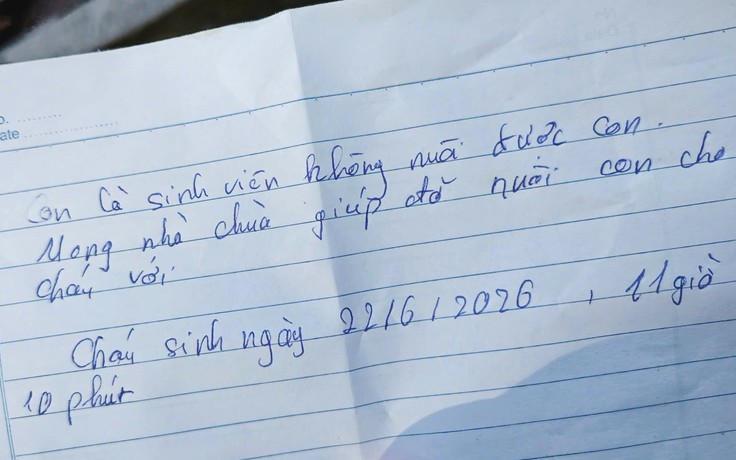 o.
ate
Con là sinh viên không nuôi được con.
Mong nhà chùa giúp đỡ nuôi con cho
cháu với
Cháu sinh ngày 22/6/2026, 11 giờ
10 phút